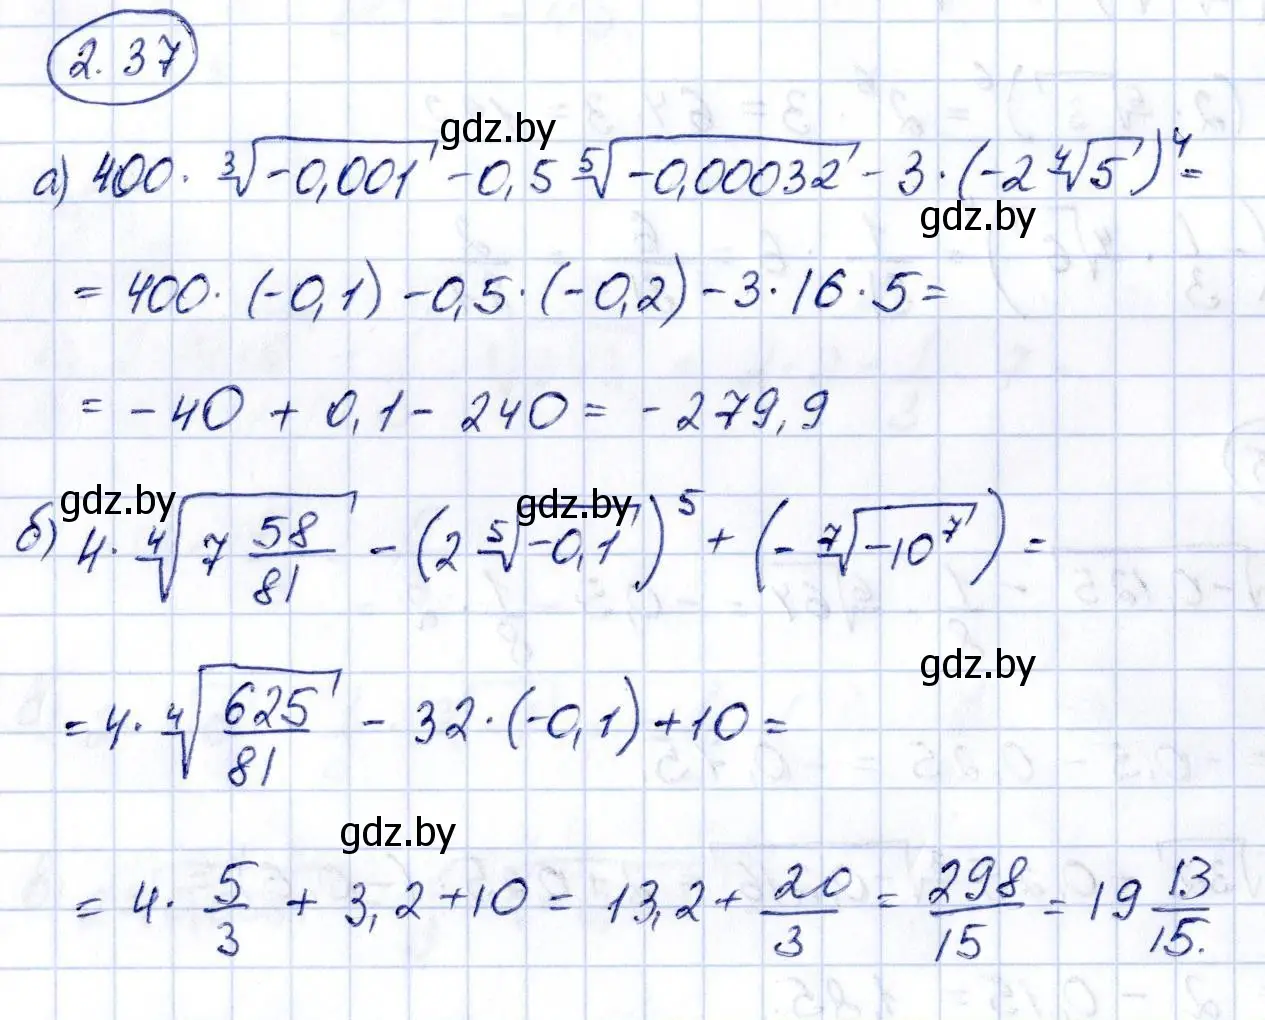 2.37
gdz.by
а) 400 · ∛(-0,001) - 0,5 ⁵√(-0,00032) - 3 · (-2 ⁴√5)⁴ =
gdz.by
= 400 · (-0,1) - 0,5 · (-0,2) - 3 · 16 · 5 =
= - 40 + 0,1 - 240 = - 279,9
gdz.by gdz.by
б) 4 · ⁴√(7 58/81) - (2 ⁵√(-0,1))⁵ + (- ⁷√(-10⁷)) =
gdz.by
= 4 · ⁴√(625/81) - 32 · (-0,1) + 10 =
gdz.by
= 4 · 5/3 + 3,2 + 10 = 13,2 + 20/3 = 298/15 = 19 13/15.